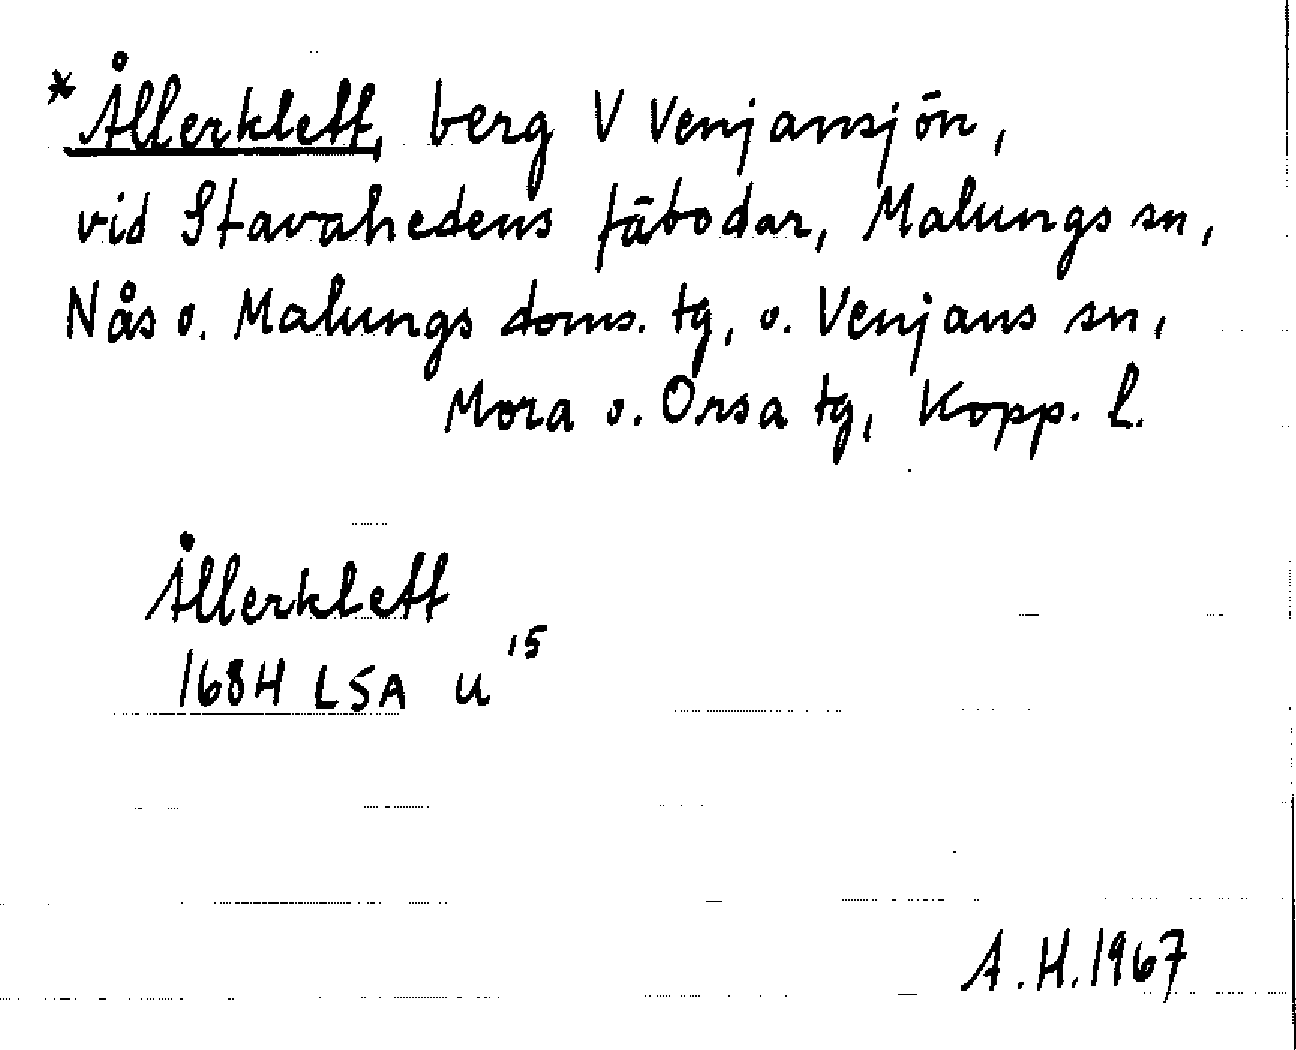 *Ållerklett, berg V Venjansjön,
vid Stavahedens fäbodar, Malungs sn,
Nås o. Malungs doms. tg, o. Venjans sn,
Mora o. Orsa tg, Kopp. l.
Ållerklett
1684 LSA U¹⁵
A.H. 1967